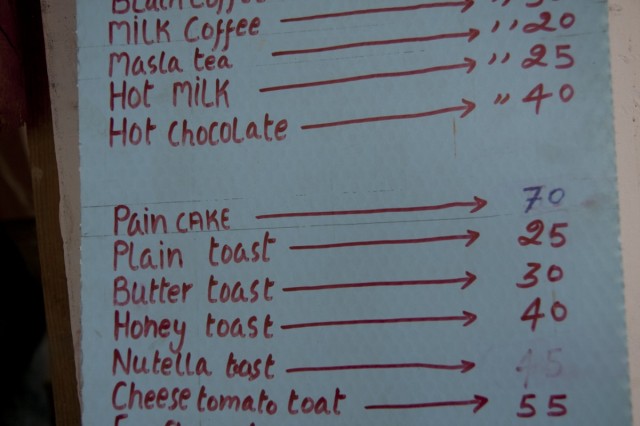 Coffee
MILK Coffee → " 30
Masla tea → " 20
Hot MILK → " 25
Hot chocolate → " 40
Pain CAKE → 70
Plain toast → 25
Butter toast → 30
Honey toast → 40
Nutella tast → 45
Cheese tomato toat → 55